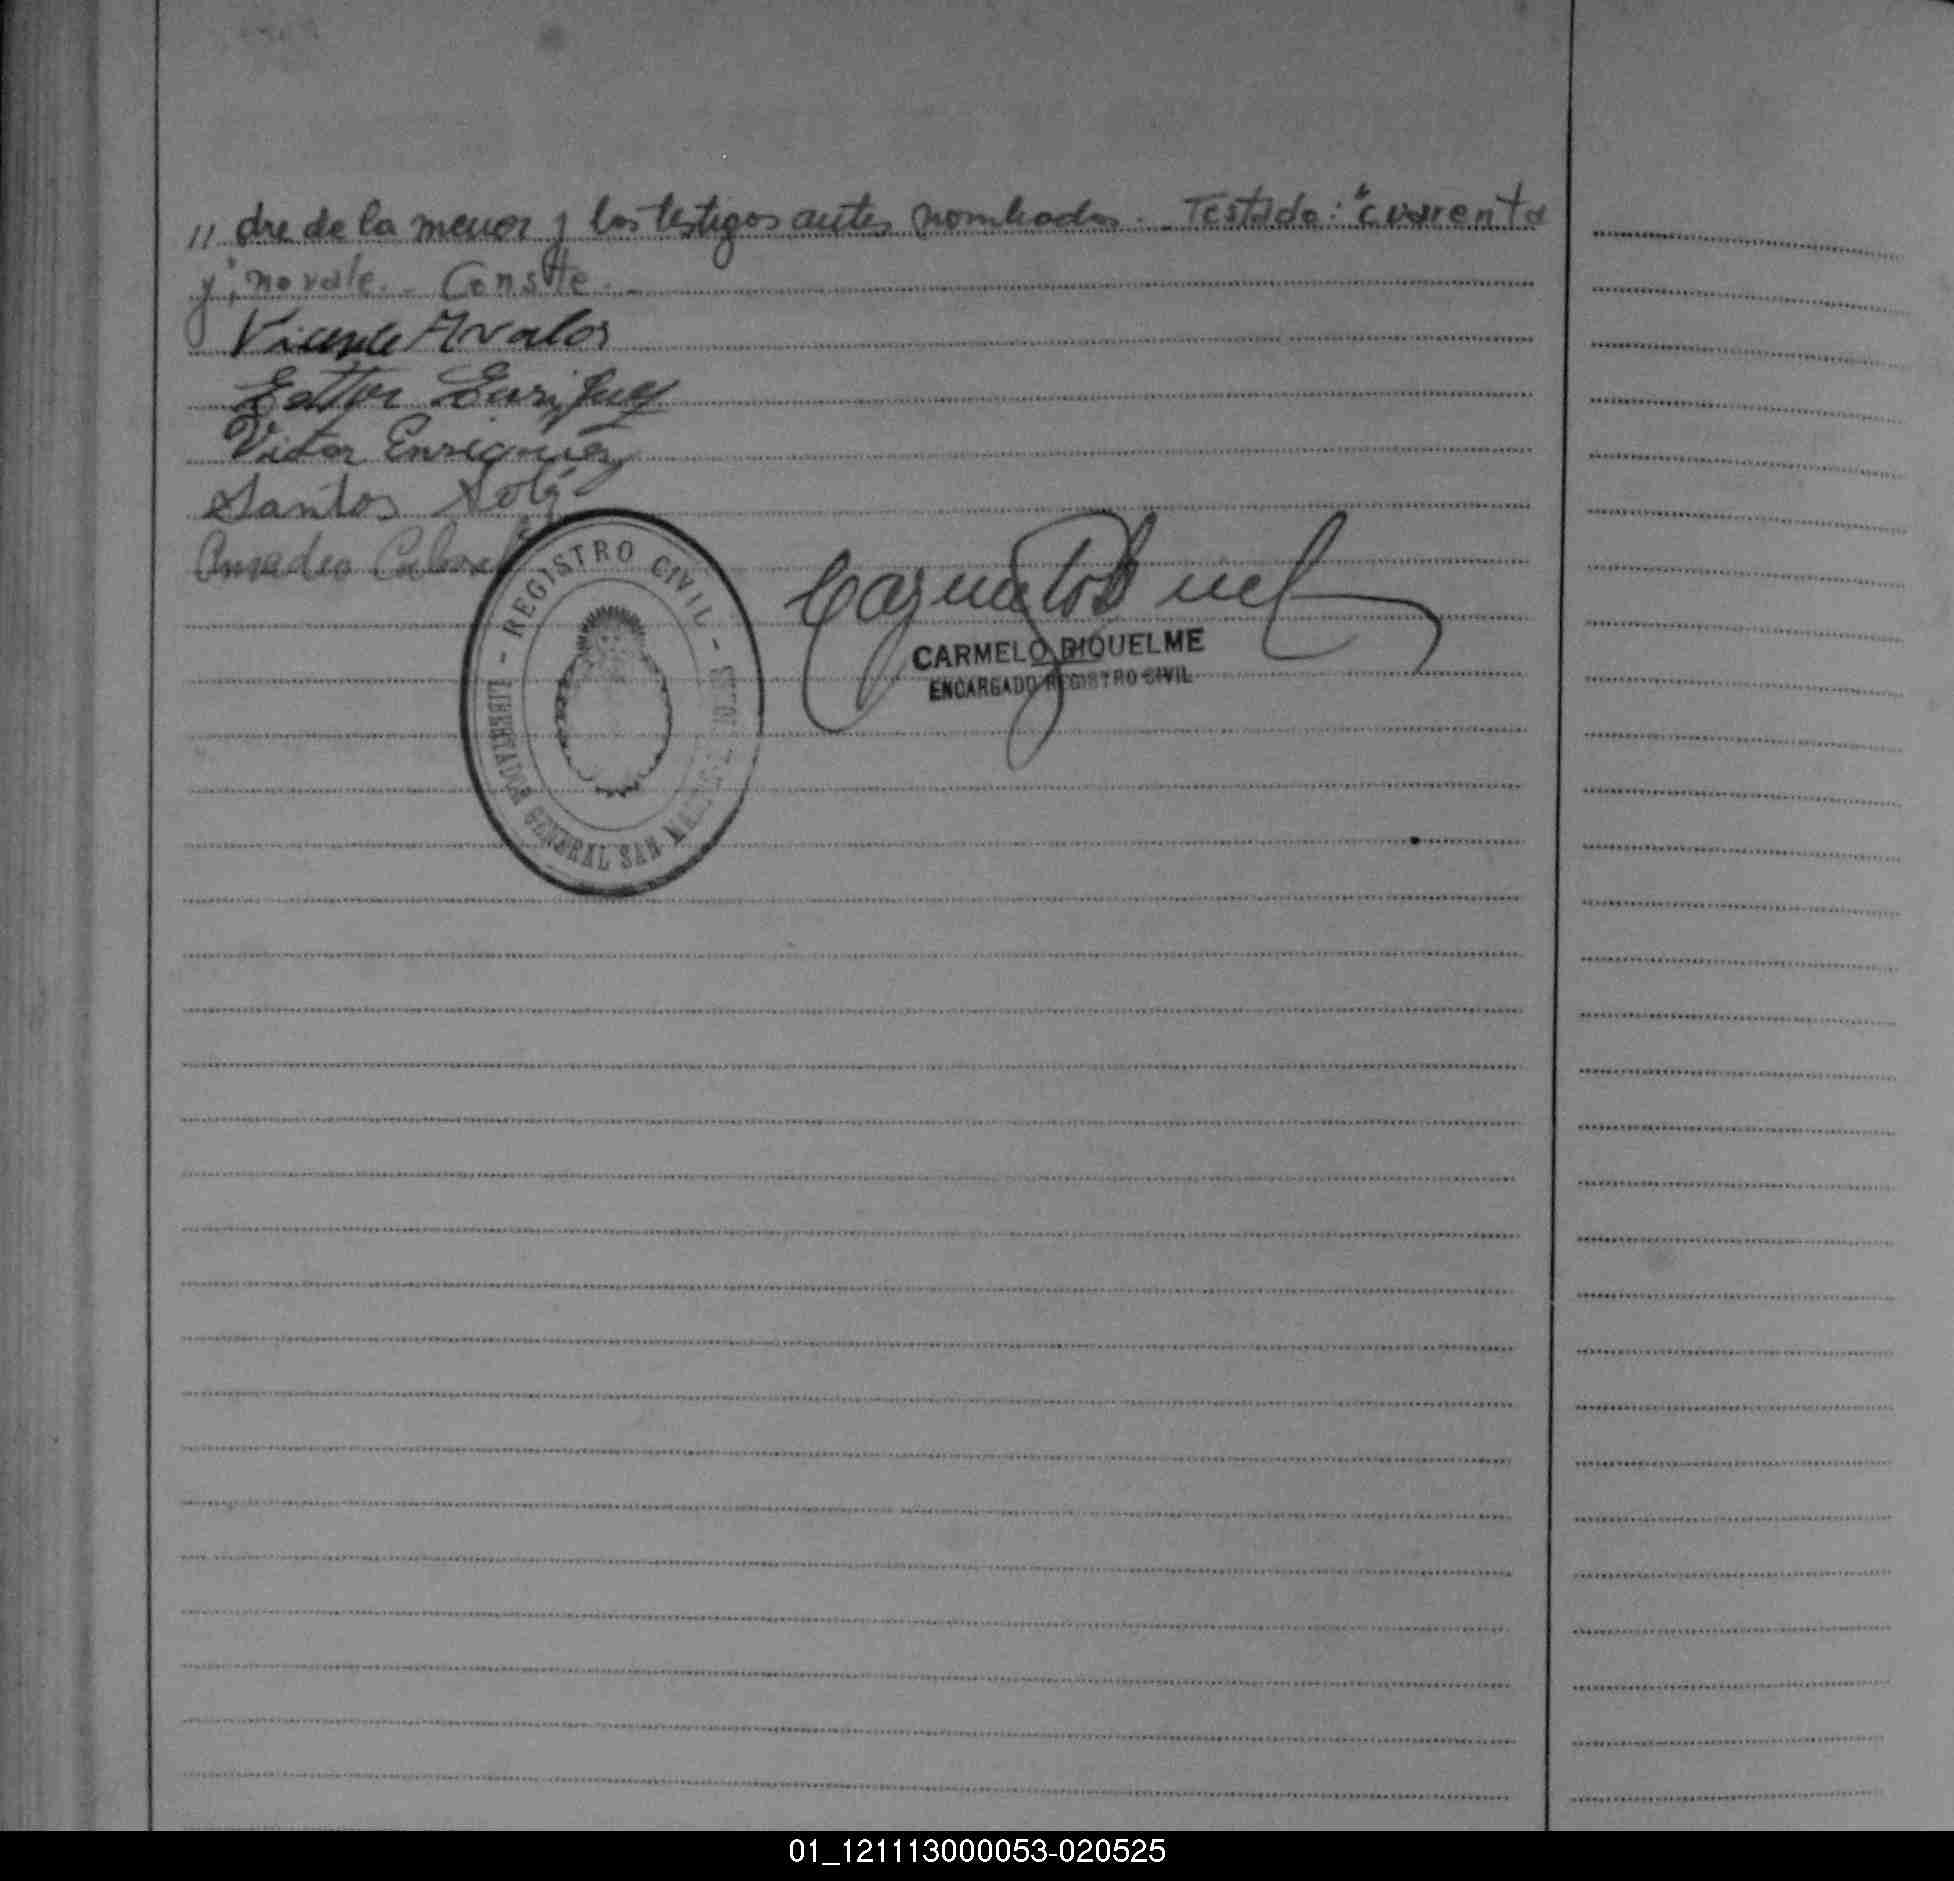 // dre de la menor y los testigos antes nombrados. - Testado: "cuarenta
y", no vale. - Conste. -
Vicente Avalos
Ester Enriquez
Victor Enriquez
Santos Solí
Amadeo Cabral
- REGISTRO CIVIL -
LIBERTADOR GENERAL SAN MARTIN
CARMELO RIQUELME
ENCARGADO REGISTRO CIVIL
01_121113000053-020525